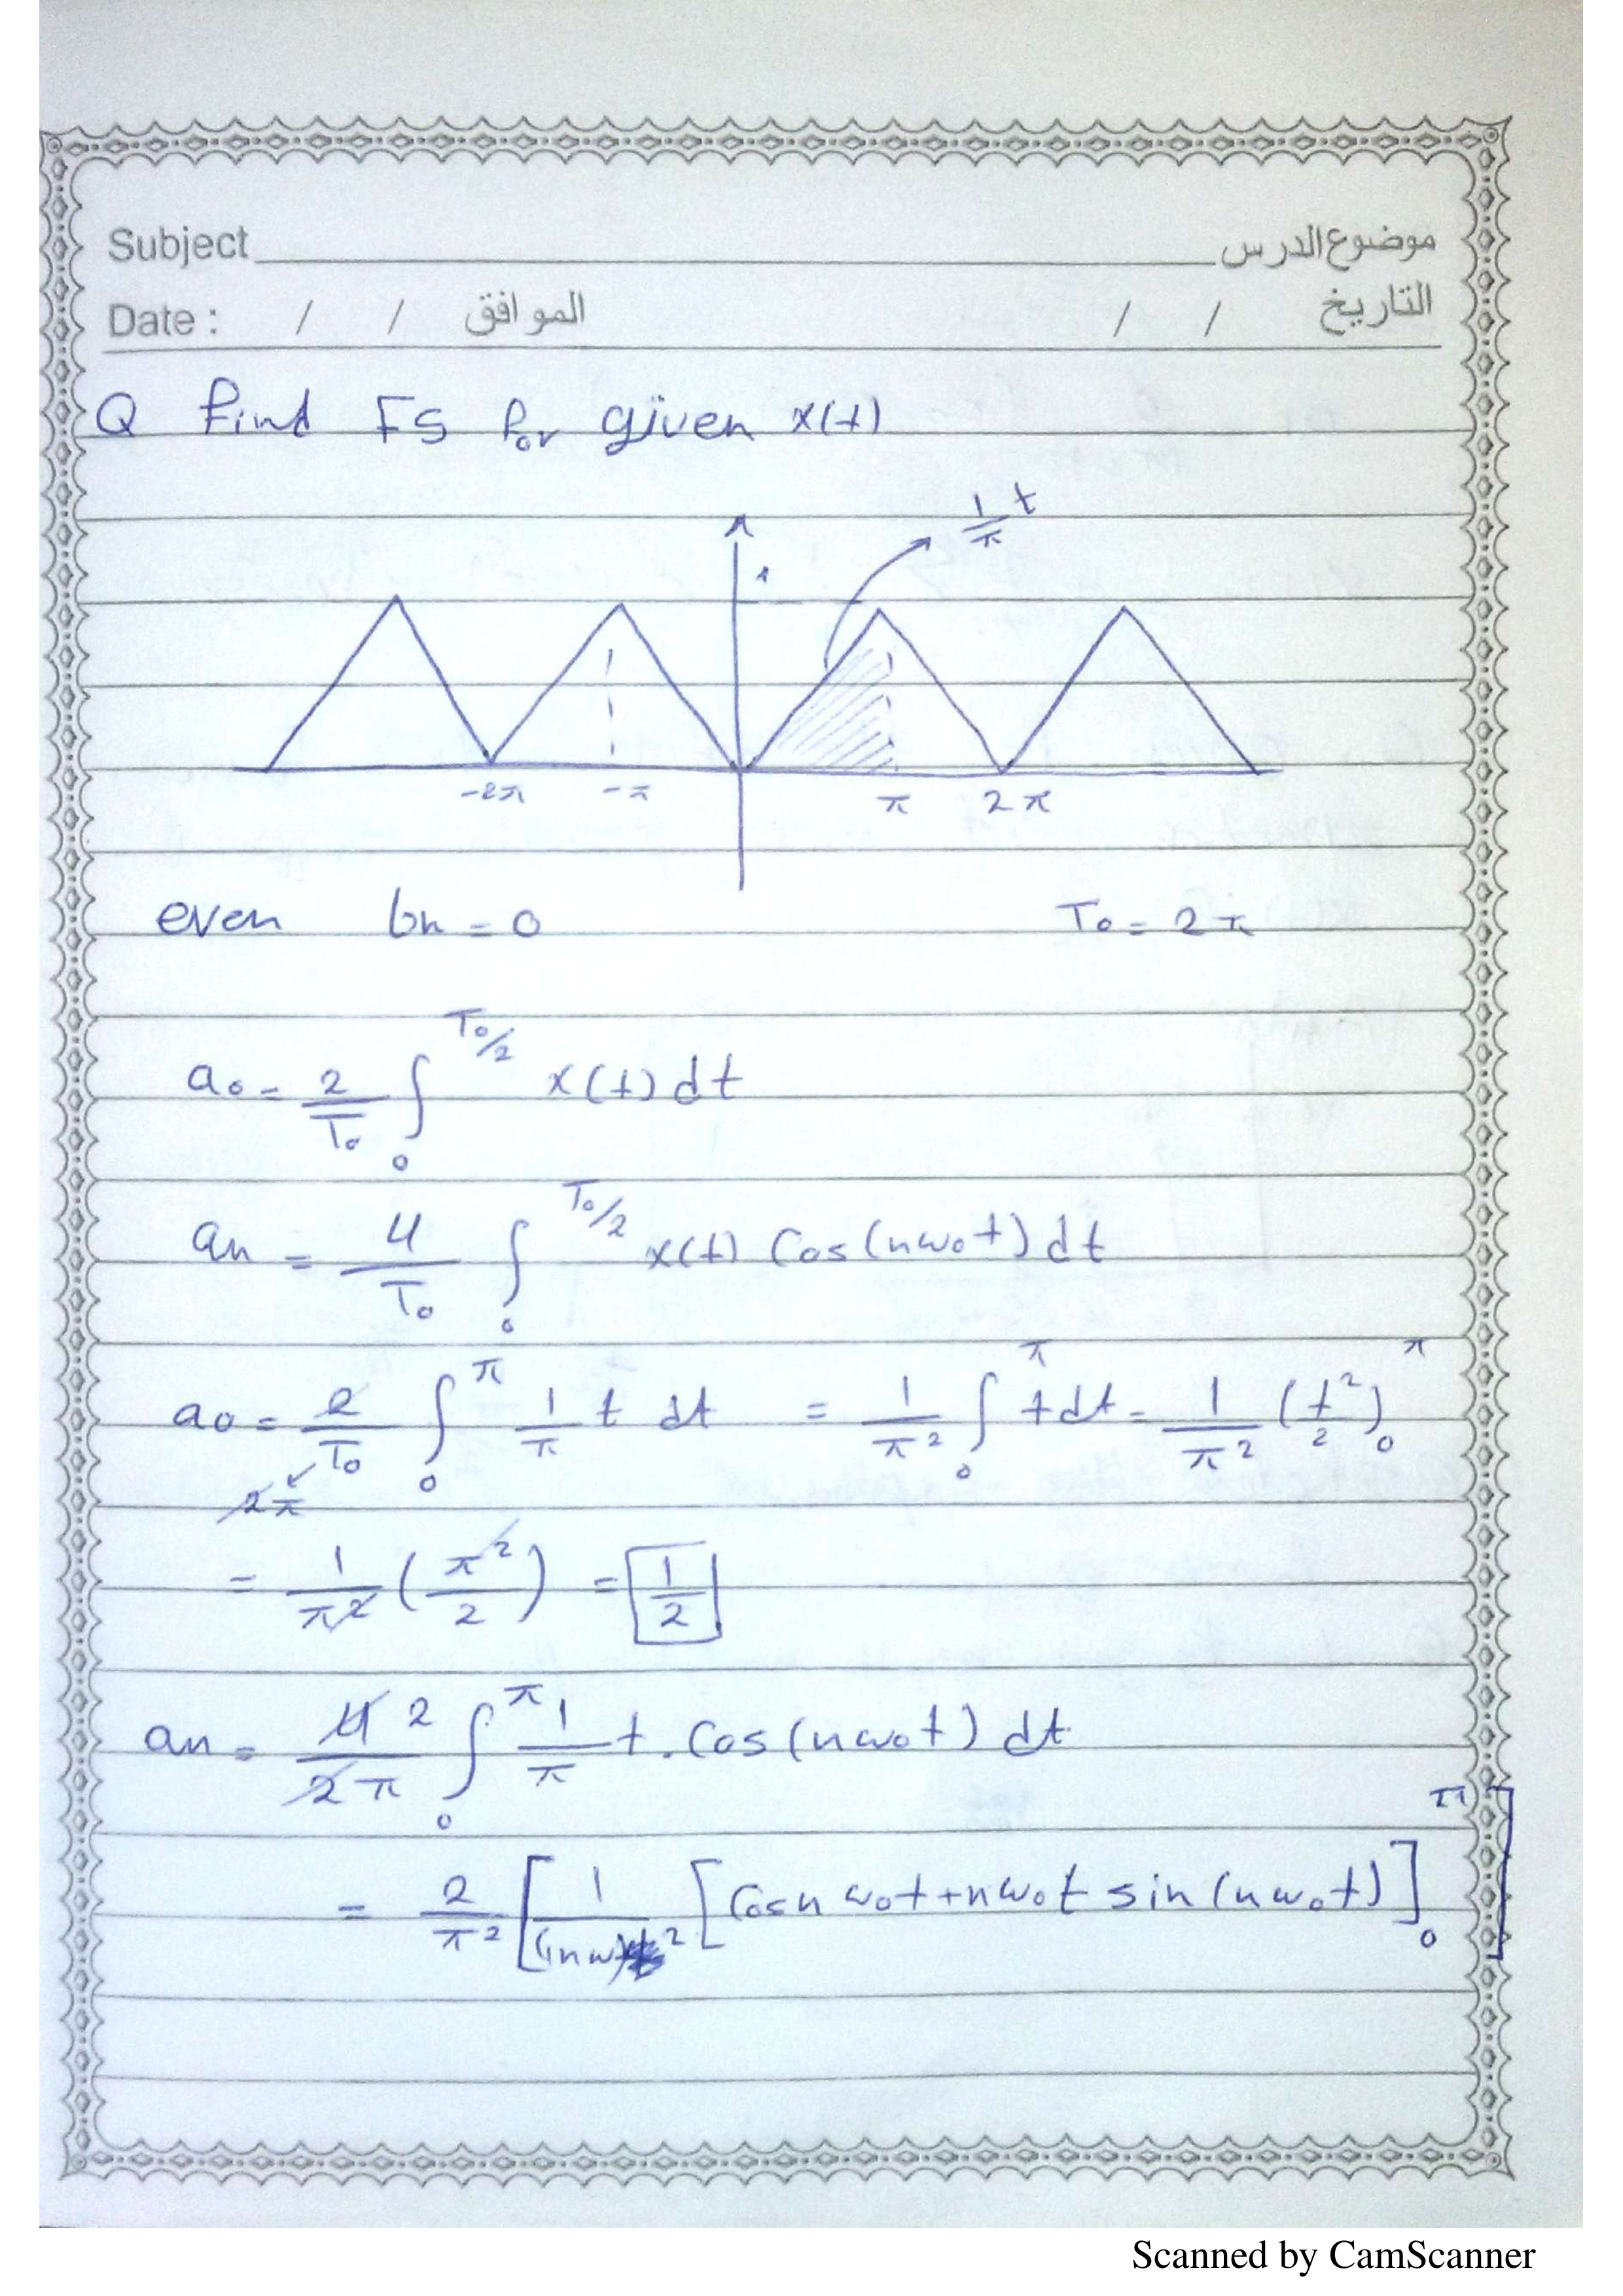 Subject موضوع الدرس
Date : / / الموافق / / التاريخ
Q find FS for given x(t)
1/π t
1
-2π -π π 2π
even bn = 0 T₀ = 2π
a₀ = 2/T₀ ∫₀^(T₀/2) x(t) dt
an = 4/T₀ ∫₀^(T₀/2) x(t) Cos(nω₀t) dt
a₀ = 2/T₀ ∫₀^π 1/π t dt = 1/π² ∫₀^π t dt = 1/π² (t²/2)₀^π
2π
= 1/π² (π²/2) = 1/2
an = 4 2/2π ∫₀^π 1/π t . Cos(nω₀t) dt
= 2/π² [ 1/(nω)² [Cosnω₀t + nω₀t sin(nω₀t)]₀^π ]
Scanned by CamScanner